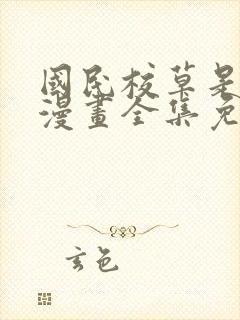 國民校草是
漫畫全集免
玄色